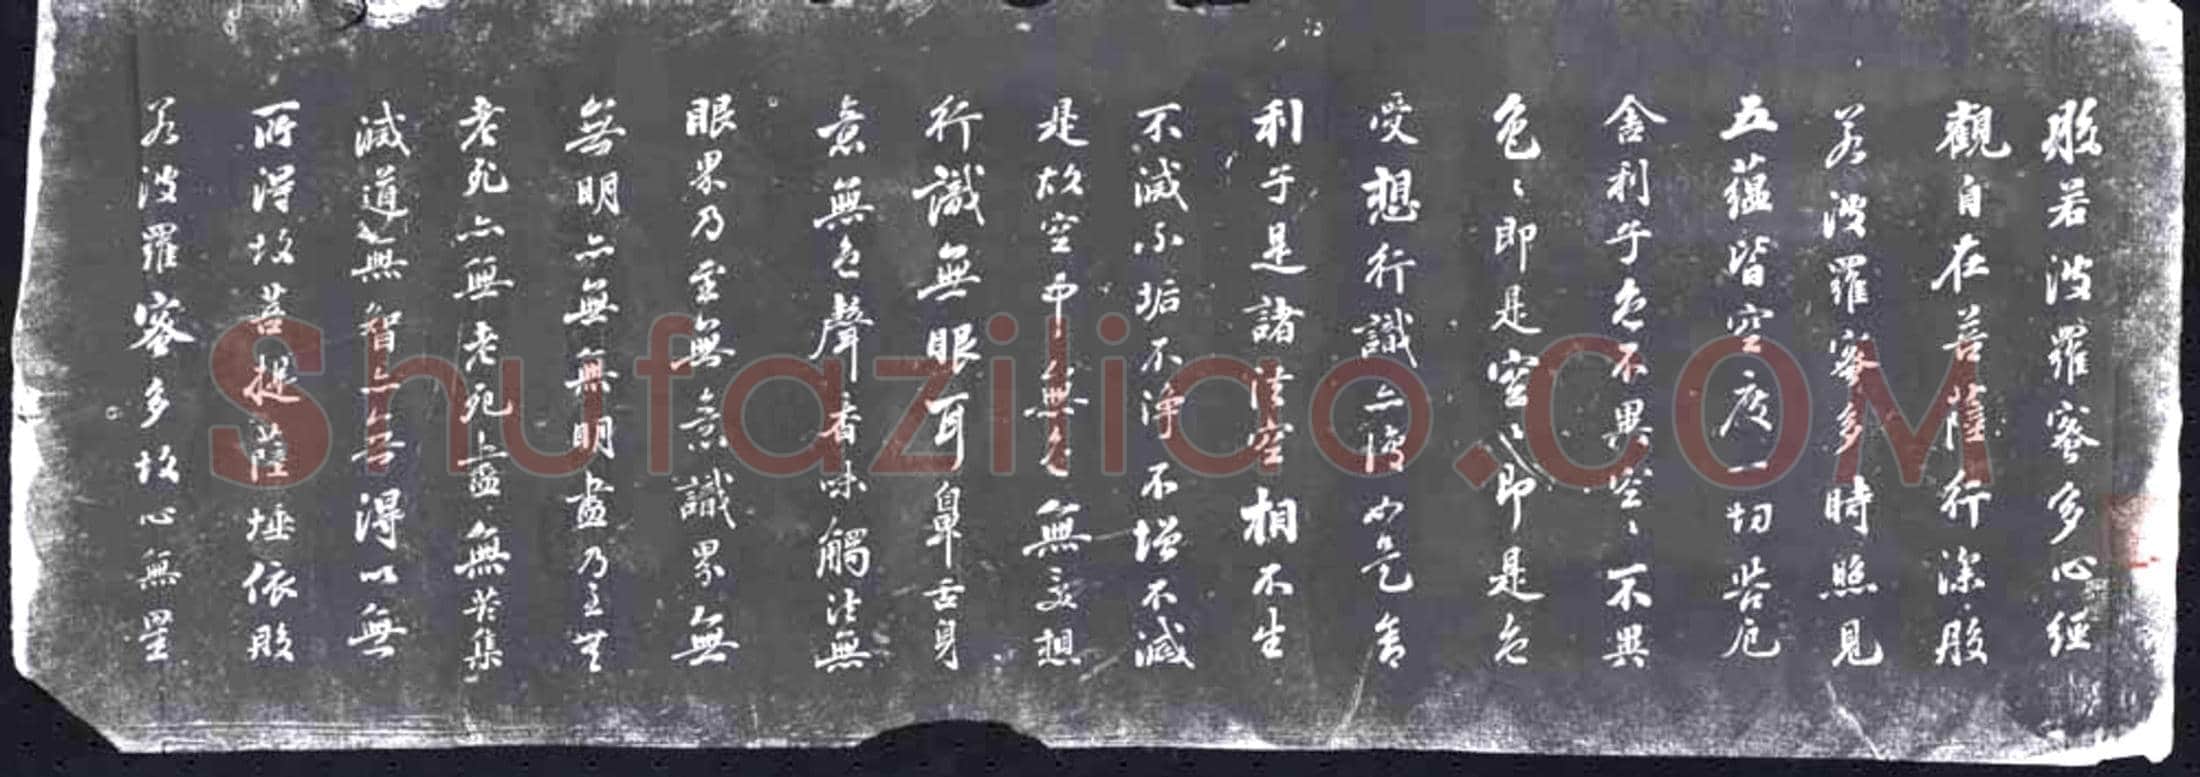 般若波羅密多心經
觀自在菩薩行深般
若波羅密多時照見
五蘊皆空度一切苦厄
舍利子色不異空〻不異
色〻即是空〻即是色
受想行識亦復如是舍
利子是諸法空相不生
不滅不垢不淨不增不滅
是故空中無色無受想
行識無眼耳鼻舌身
意無色聲香味觸法無
眼界乃至無意識界無
無明亦無無明盡乃至無
老死亦無老死盡無苦集
滅道無智亦無得以無
所得故菩提薩埵依般
若波羅密多故心無罣
Shufaziliao.COM